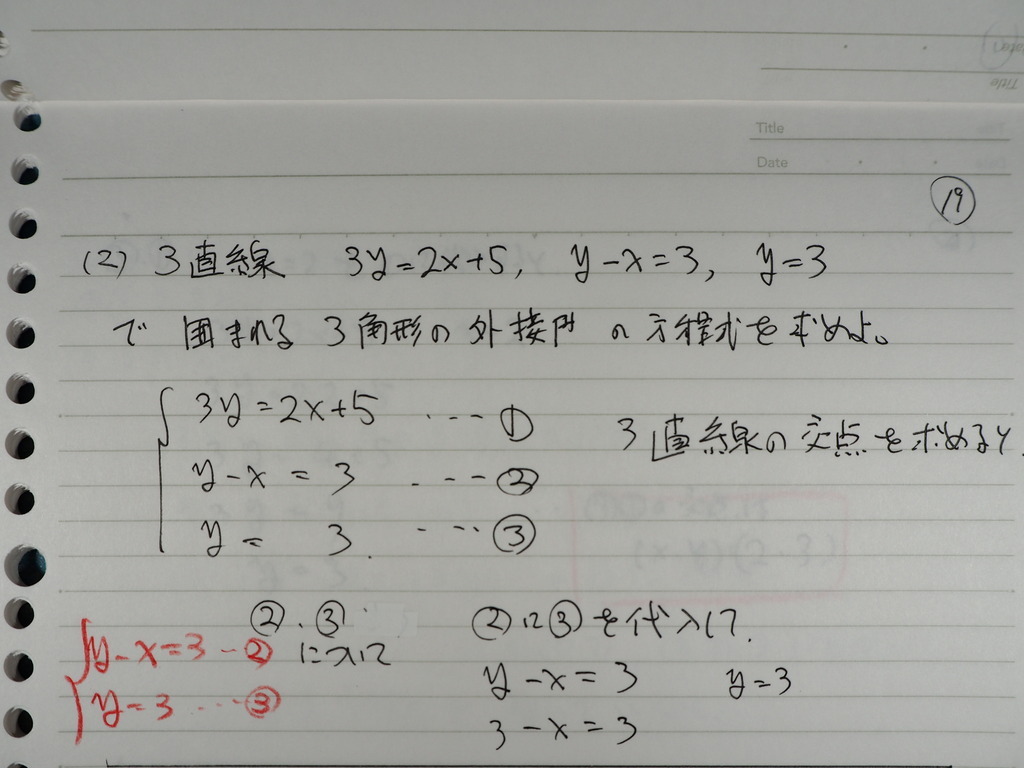 Title
Date
⑲
(2) 3直線 3y=2x+5, y-x=3, y=3
で 囲まれる 3角形の外接円の方程式を求めよ。
3y=2x+5 ・・・①
3直線の交点を求めると
y-x=3 ・・・②
y=3. ・・・③
②.③
について
②に③を代入して.
y-x=3 -②
y=3 ・・・③
y-x=3 y=3
3-x=3